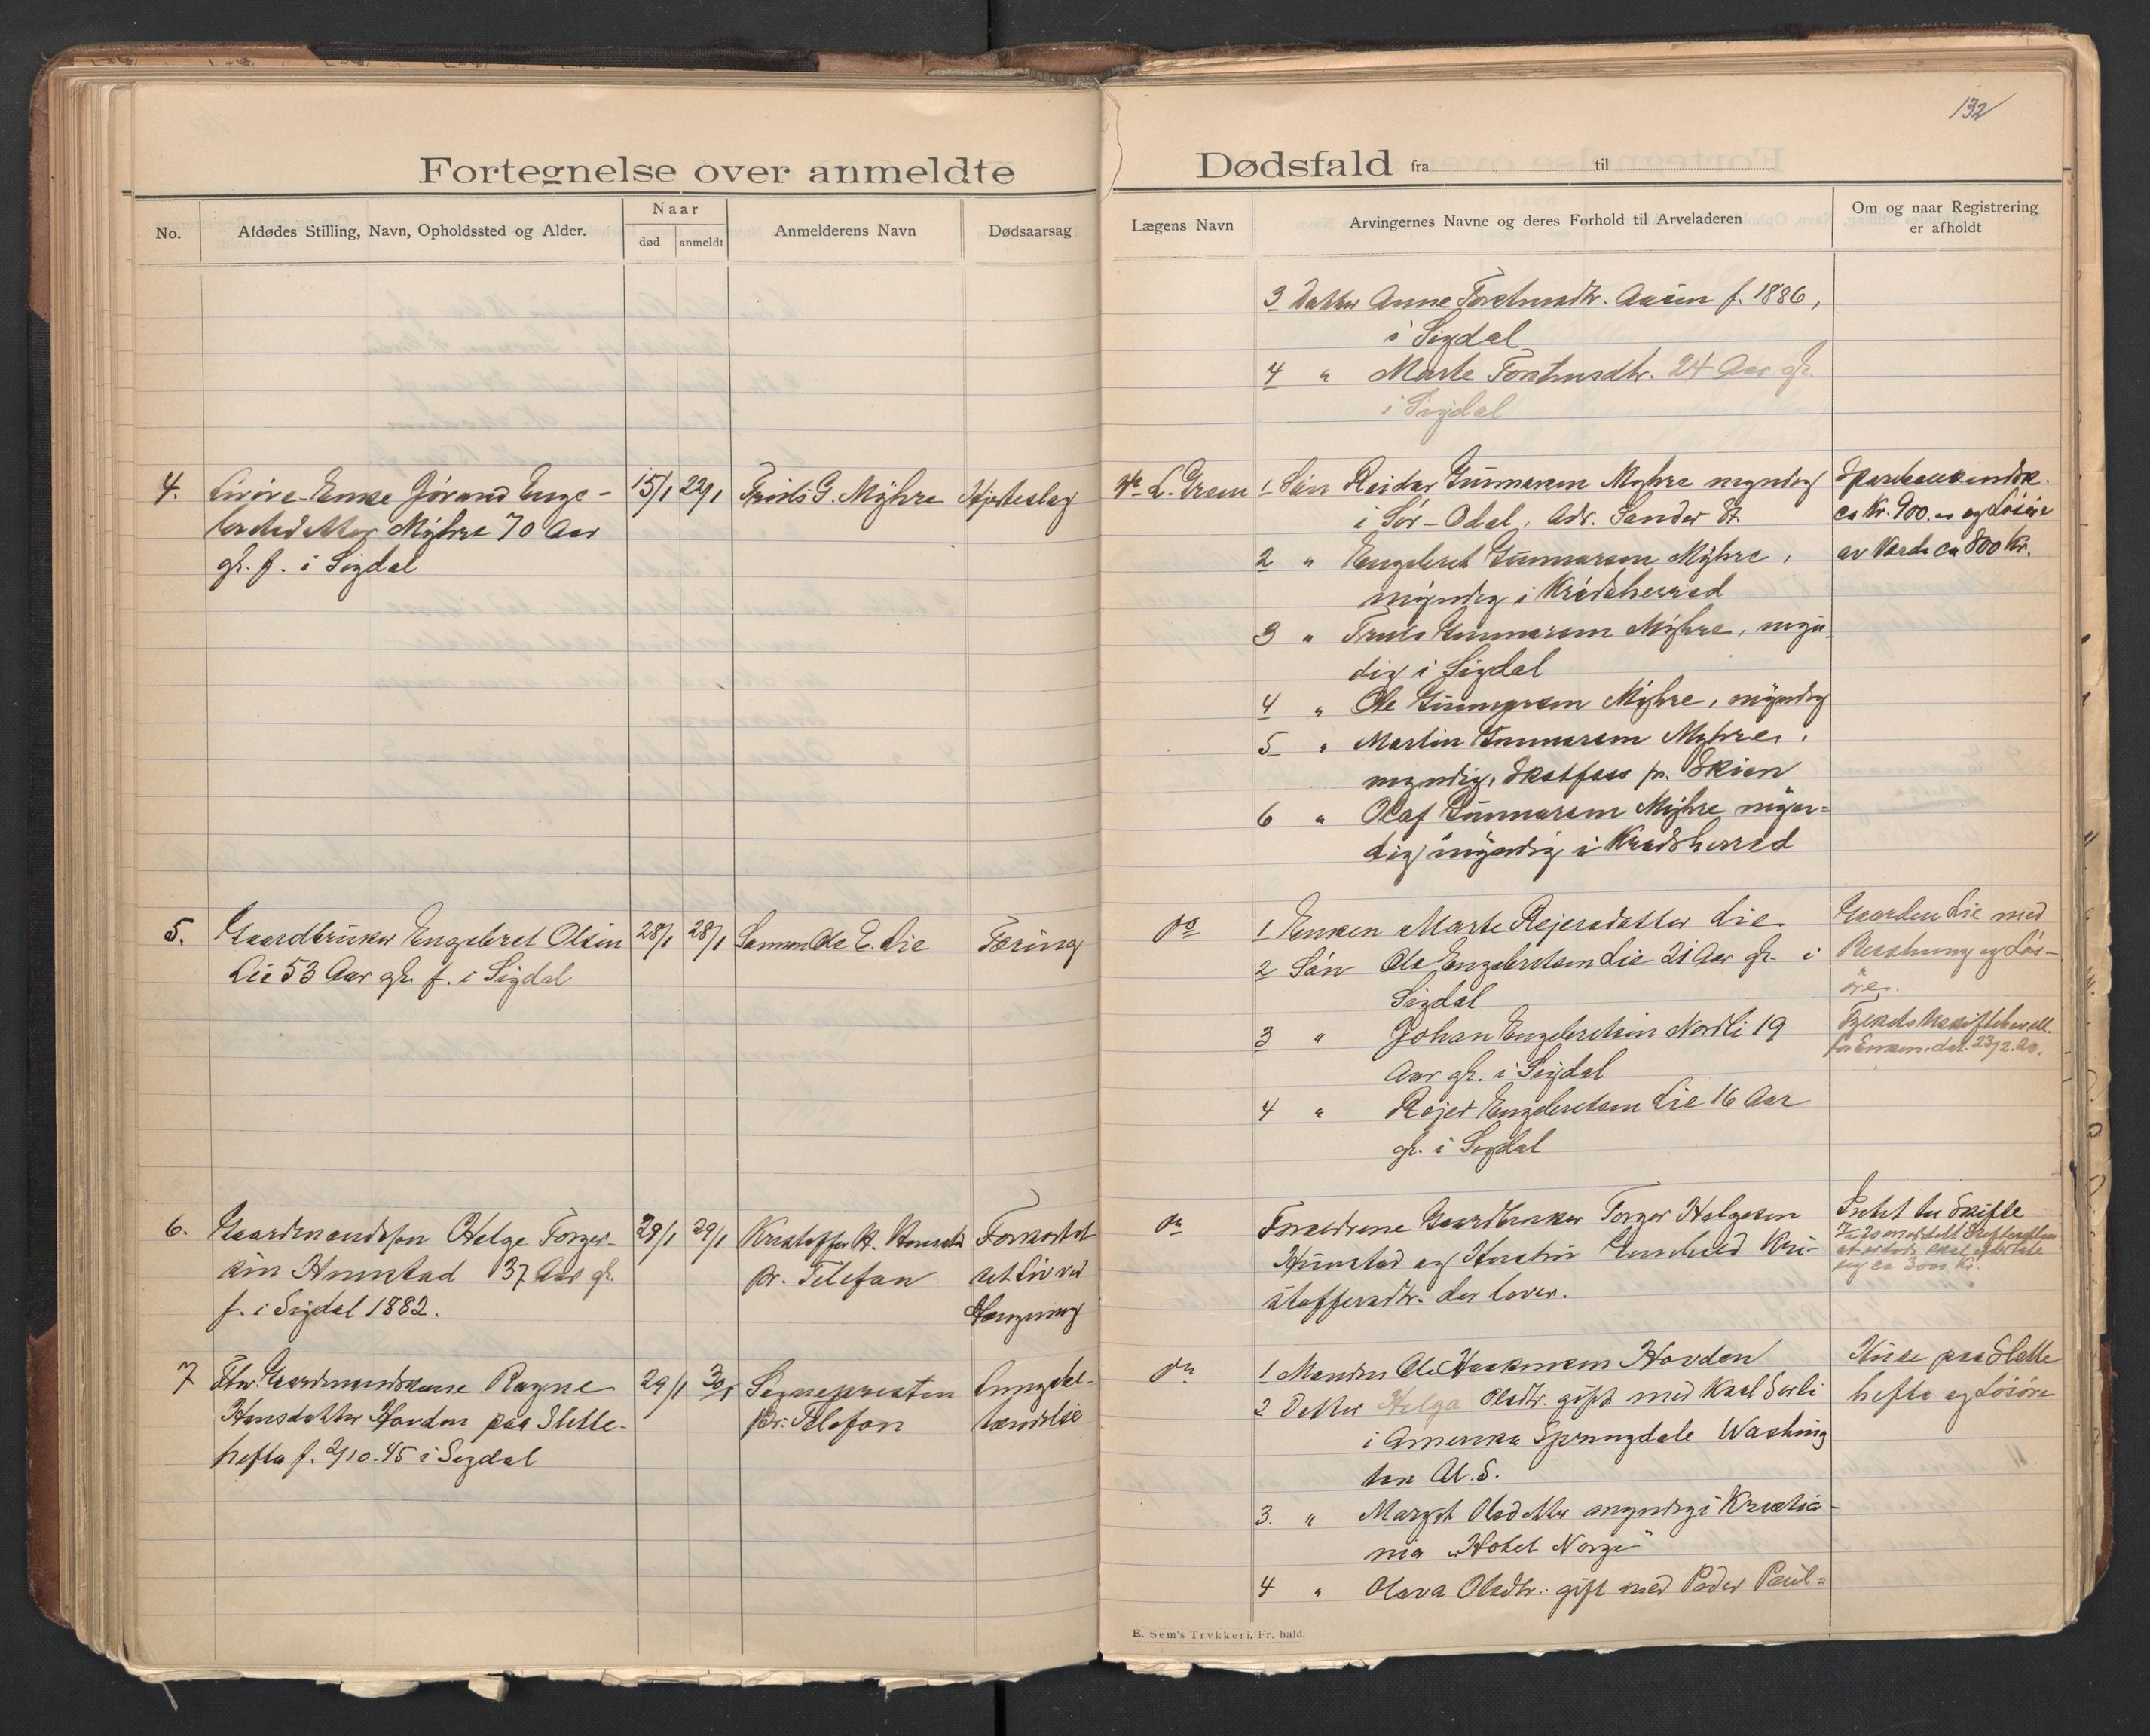 132
Fortegnelse over anmeldte
Dødsfald fra til
No.
Afdødes Stilling, Navn, Opholdssted og Alder.
Naar
død anmeldt
Anmelderens Navn
Dødsaarsag
Lægens Navn
Arvingernes Navne og deres Forhold til Arveladeren
Om og naar Registrering
er afholdt
3 Datter Anne Aasen f. 1886,
i Sigdal
4 " Marte 24 Aar gl.
i Sigdal
4. Enke Jørand Enge-
bretsdatter Myhre 70 Aar
gl. f. i Sigdal
15/1 22/1
G. Myhre
Hjerteslag
1 Søn Reidar Gunnarsen Myhre myndig
i Sør-Odal, Adr. Sander St.
2 " Engebret Gunnarsen Myhre,
myndig i Krødsherred
3 " Truls Gunnarsen Myhre, myn-
dig i Sigdal
4 " Ole Gunnarsen Myhre, myndig
5 " Martin Gunnarsen Myhre,
myndig, Skotfoss pr. Skien
6 " Olaf Gunnarsen Myhre myn=
dig myndig i Krødsherred
ca Kr. 900.- og Løsøre
av Værdi ca 800 Kr.
5. Gaardbruker Engebret Olsen
Lie 53 Aar gl. f. i Sigdal
28/1 28/1
Sønnen Ole E. Lie
Tæring
do
1 Enken Marte Rejersdatter Lie
2 Søn Ole Engebretsen Lie 21 Aar gl. i
Sigdal
3 " Johan Engebretsen Nordli 19
Aar gl. i Sigdal
4 " Rejer Engebretsen Lie 16 Aar
gl. i Sigdal
Gaarden Lie med
Besætning og Løs-
øre.
for Enken, dat. 23/2.20.
6. Gaardmandssøn Helge Torger-
sen Hunstad 37 Aar gl.
f. i Sigdal 1882.
29/1 29/1
Kristoffer H.
pr. Telefon
Forkortet
sit Liv ved
Hængning
do
Forældrene Gaardbruker Torger Helgesen
Hunstad og Hustru Kri-
stoffersdtr. der lever.
Intet til Skifte
ca 3000 Kr.
7 Fhv. Gaardmandskone Ragne
Hansdatter Hovden paa Slette-
hefta f. 2/10-45 i Sigdal
29/1 30/1
Sognepresten
pr. Telefon
Lungebe-
tændelse
do
1 Manden Ole Haakonsen Hovden
2 Datter Helga Olsdtr. gift med Karl
i Amerika Springdale Washing
ton
3. " Margit Olsdatter myndig i Kristia-
nia "Hotel Norge"
4 " Olava Olsdtr. gift med Peder Paul=
Huse paa Slette
hefta og Løsøre
E. Sem's Trykkeri, Fr. hald.